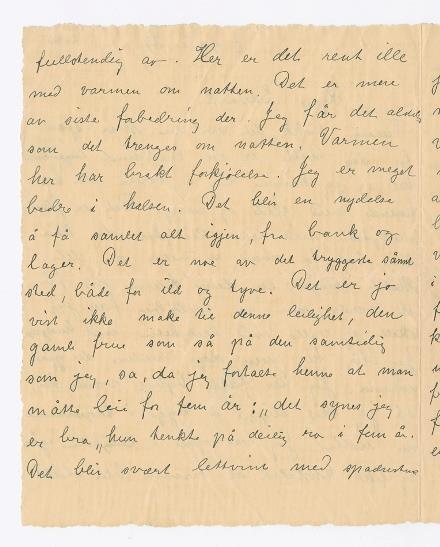 fullstendig av. Her er det rent ille
med varmen om natten. Det er mere
av siste forbedring der. Jeg får det aldri
som det trenges om natten. Varmen
her har brakt forkjölelse. Jeg er meget
bedre i halsen. Det blir en nydelse
å få samlet alt igjen, fra bank og
lager. Det er noe av det tryggeste sånt
sted, både for ild og tyve. Det er jo
visst ikke make til denne leilighet, den
gamle frue som så på den samtidig
som jeg, sa, da jeg fortalte henne at man
måtte leie for fem år: „det synes jeg
er bra„ hun tenkte på deilig ro i fem år.
Det blir svært lettvint med